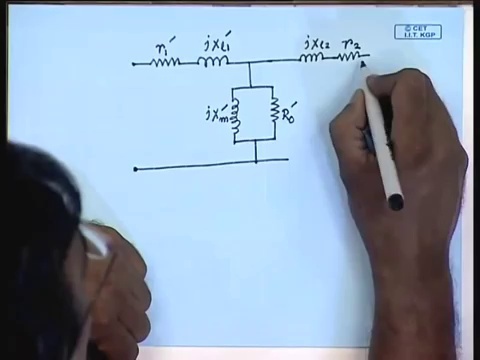 © CET
I.I.T. KGP
r₁′ jxℓ₁′ jxℓ₂ r₂
jxm′ R₀′